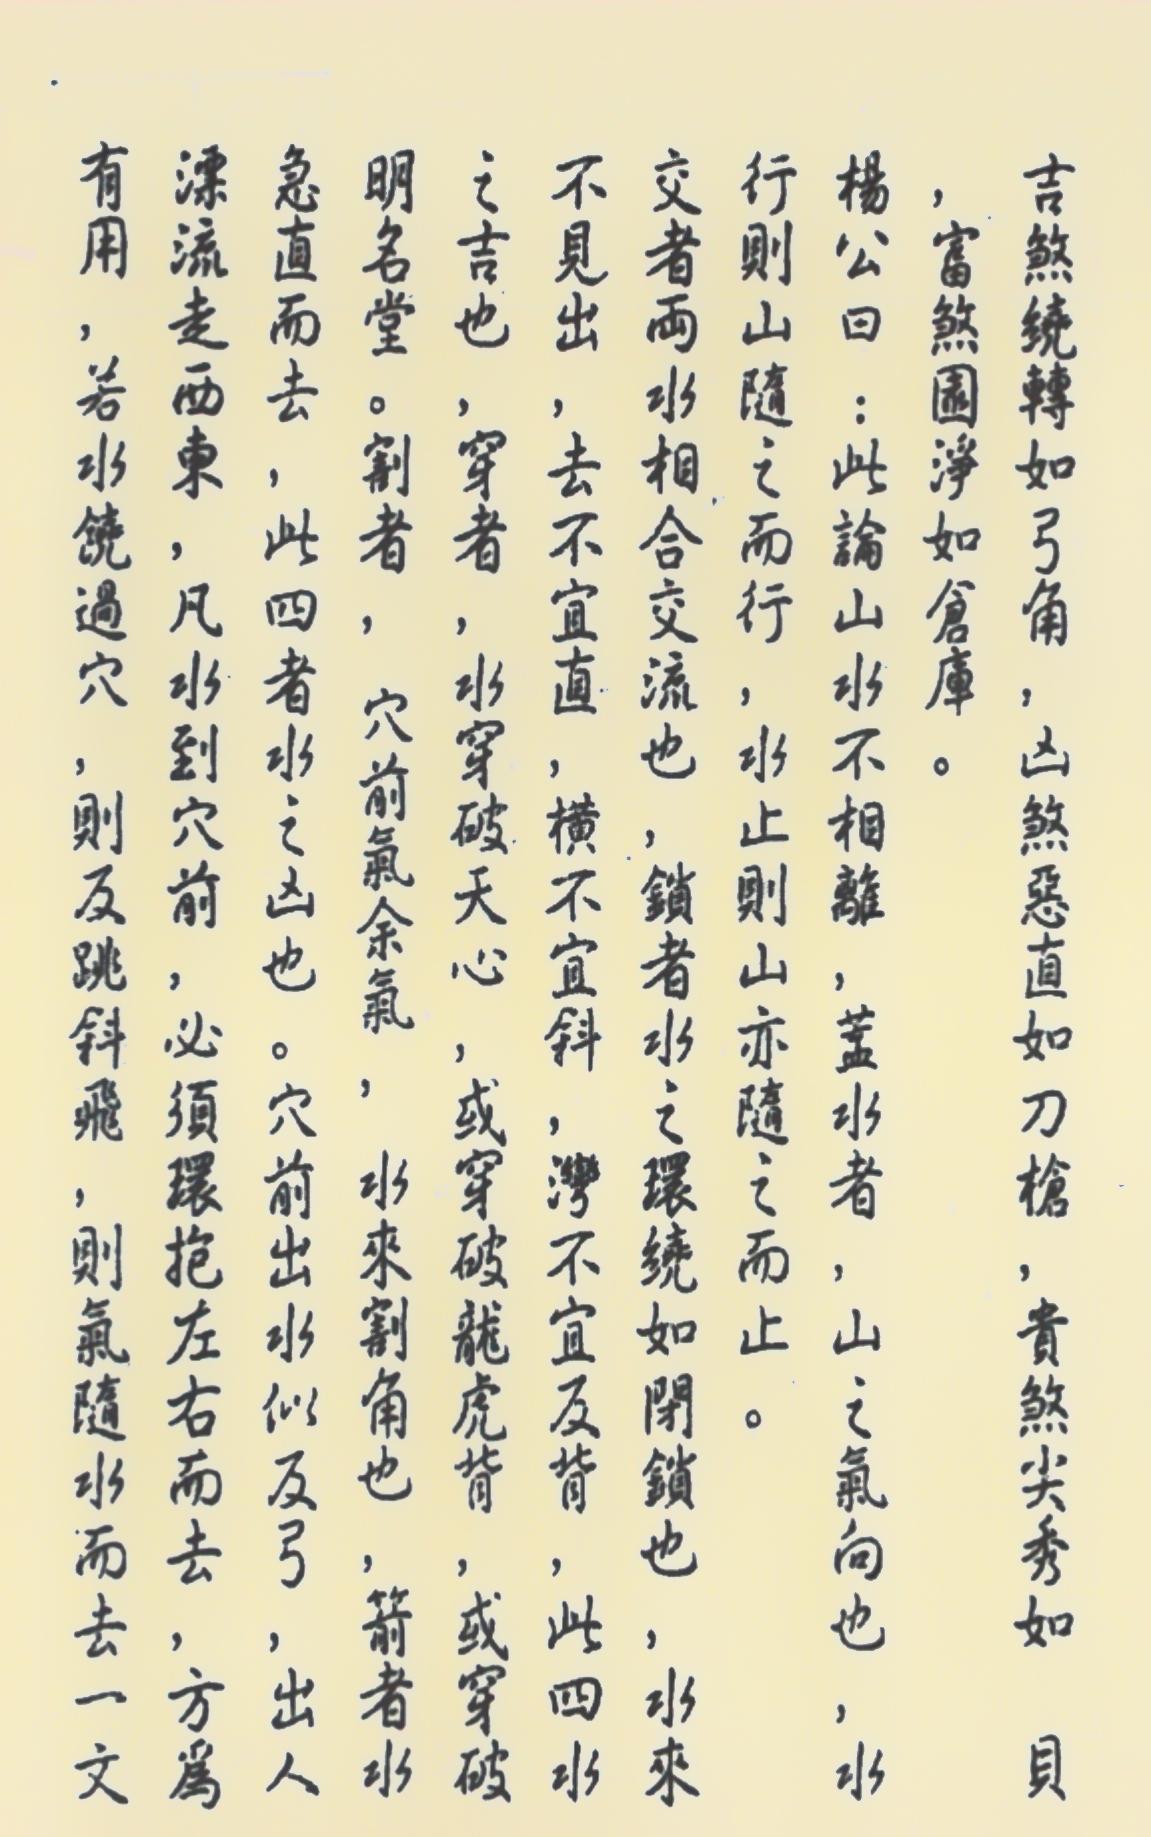 吉煞繞轉如弓角，凶煞惡直如刀槍，貴煞尖秀如　貝
，富煞園淨如倉庫。
楊公曰：此論山水不相離，蓋水者，山之氣向也，水
行則山隨之而行，水止則山亦隨之而止。
交者両水相合交流也，鎖者水之環繞如閉鎖也，水來
不見出，去不宜直，橫不宜斜，灣不宜反背，此四水
之吉也，穿者，水穿破天心，或穿破龍虎背，或穿破
明名堂。割者，穴前氣余氣，水來割角也，箭者水
急直而去，此四者水之凶也。穴前出水似反弓，出人
漂流走西東，凡水到穴前，必須環抱左右而去，方爲
有用，若水饒過穴，則反跳斜飛，則氣隨水而去一文